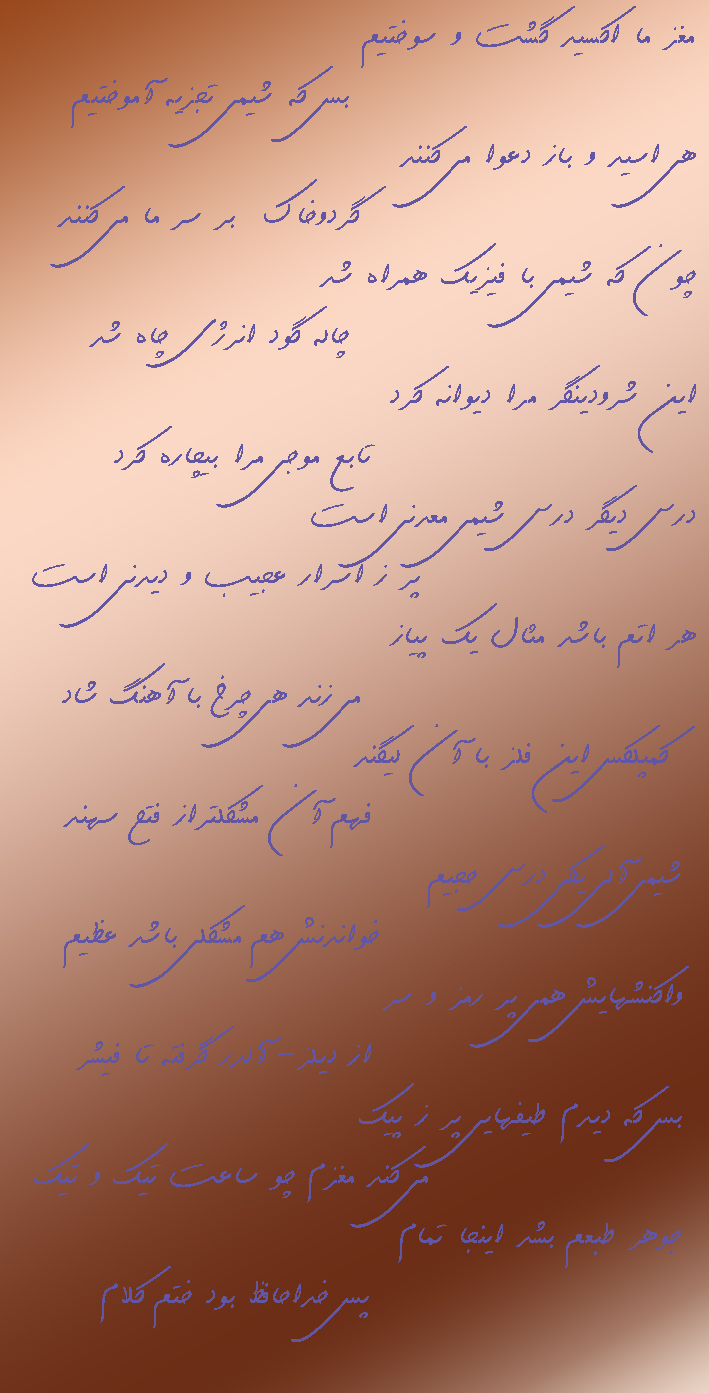 مغز ما اکسید گشت و سوختیم
بس که شیمی تجزیه آموختیم
هی اسید و باز دعوا می‌کنند
گردوخاک بر سر ما می‌کنند
چون که شیمی با فیزیک همراه شد
چاله گود انرژی چاه شد
این شرودینگر مرا دیوانه کرد
تابع موجی مرا بیچاره کرد
درس دیگر درس شیمی معدنی است
پر ز اسرار عجیب و دیدنی است
هر اتم باشد مثال یک پیاز
می زند هی چرخ با آهنگ شاد
کمپلکس این فلز با آن لیگند
فهم آن مشکلتراز فتح سهند
شیمی آلی یکی درس حجیم
خواندنش هم مشکلی باشد عظیم
واکنشهایش همی پر رمز و سر
از دیلز-آلدر گرفته تا فیشر
بس که دیدم طیفهایی پر ز پیک
می کند مغزم چو ساعت تیک و تیک
جوهر طبعم بشد اینجا تمام
پس خداحافظ بود ختم کلام